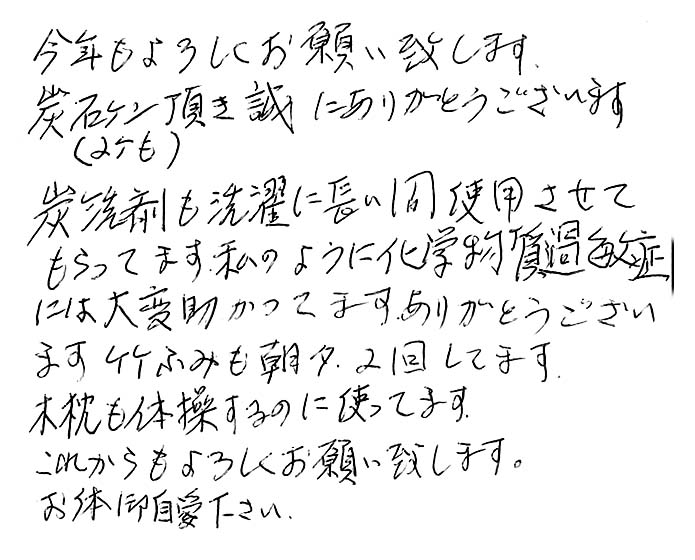 今年もよろしくお願い致します.
炭石ケン頂き誠にありがとうございます
(2ケも)
炭洗剤も洗濯に長い間使用させて
もらってます.私のように化学物質過敏症
には大変助かってます.ありがとうござい
ます 竹ふみも朝夕.2回してます.
木枕も体操するのに使ってます.
これからもよろしくお願い致します。
お体御自愛下さい.